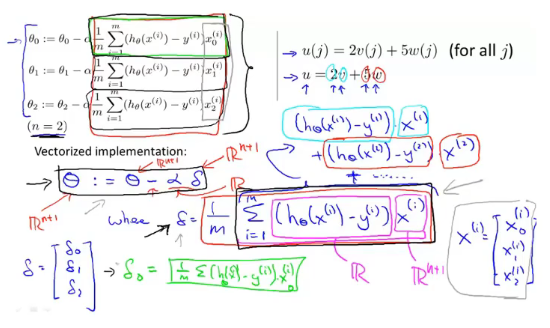 θ₀ := θ₀ - α 1/m ∑_{i=1}^{m} (h_θ(x^{(i)}) - y^{(i)}) x₀^{(i)}
θ₁ := θ₁ - α 1/m ∑_{i=1}^{m} (h_θ(x^{(i)}) - y^{(i)}) x₁^{(i)}
θ₂ := θ₂ - α 1/m ∑_{i=1}^{m} (h_θ(x^{(i)}) - y^{(i)}) x₂^{(i)}
(n = 2)
→ u(j) = 2v(j) + 5w(j) (for all j)
→ u = 2v + 5w
↑ ↑↑ ↑↑
Vectorized implementation:
ℝ^{n+1} ℝ^{n+1}
→ θ := θ - α δ
ℝ^{n+1} ℝ
(h_θ(x^{(1)}) - y^{(1)}) · x^{(1)}
+ (h_θ(x^{(2)}) - y^{(2)}) · x^{(2)}
+ ......
where δ = 1/m ∑_{i=1}^{m} (h_θ(x^{(i)}) - y^{(i)}) · x^{(i)}
ℝ ℝ^{n+1}
x^{(i)} = [x₀^{(i)} x₁^{(i)} x₂^{(i)}]
δ = [δ₀ δ₁ δ₂] → δ₀ = 1/m ∑ (h_θ(x^{(i)}) - y^{(i)}) · x₀^{(i)}